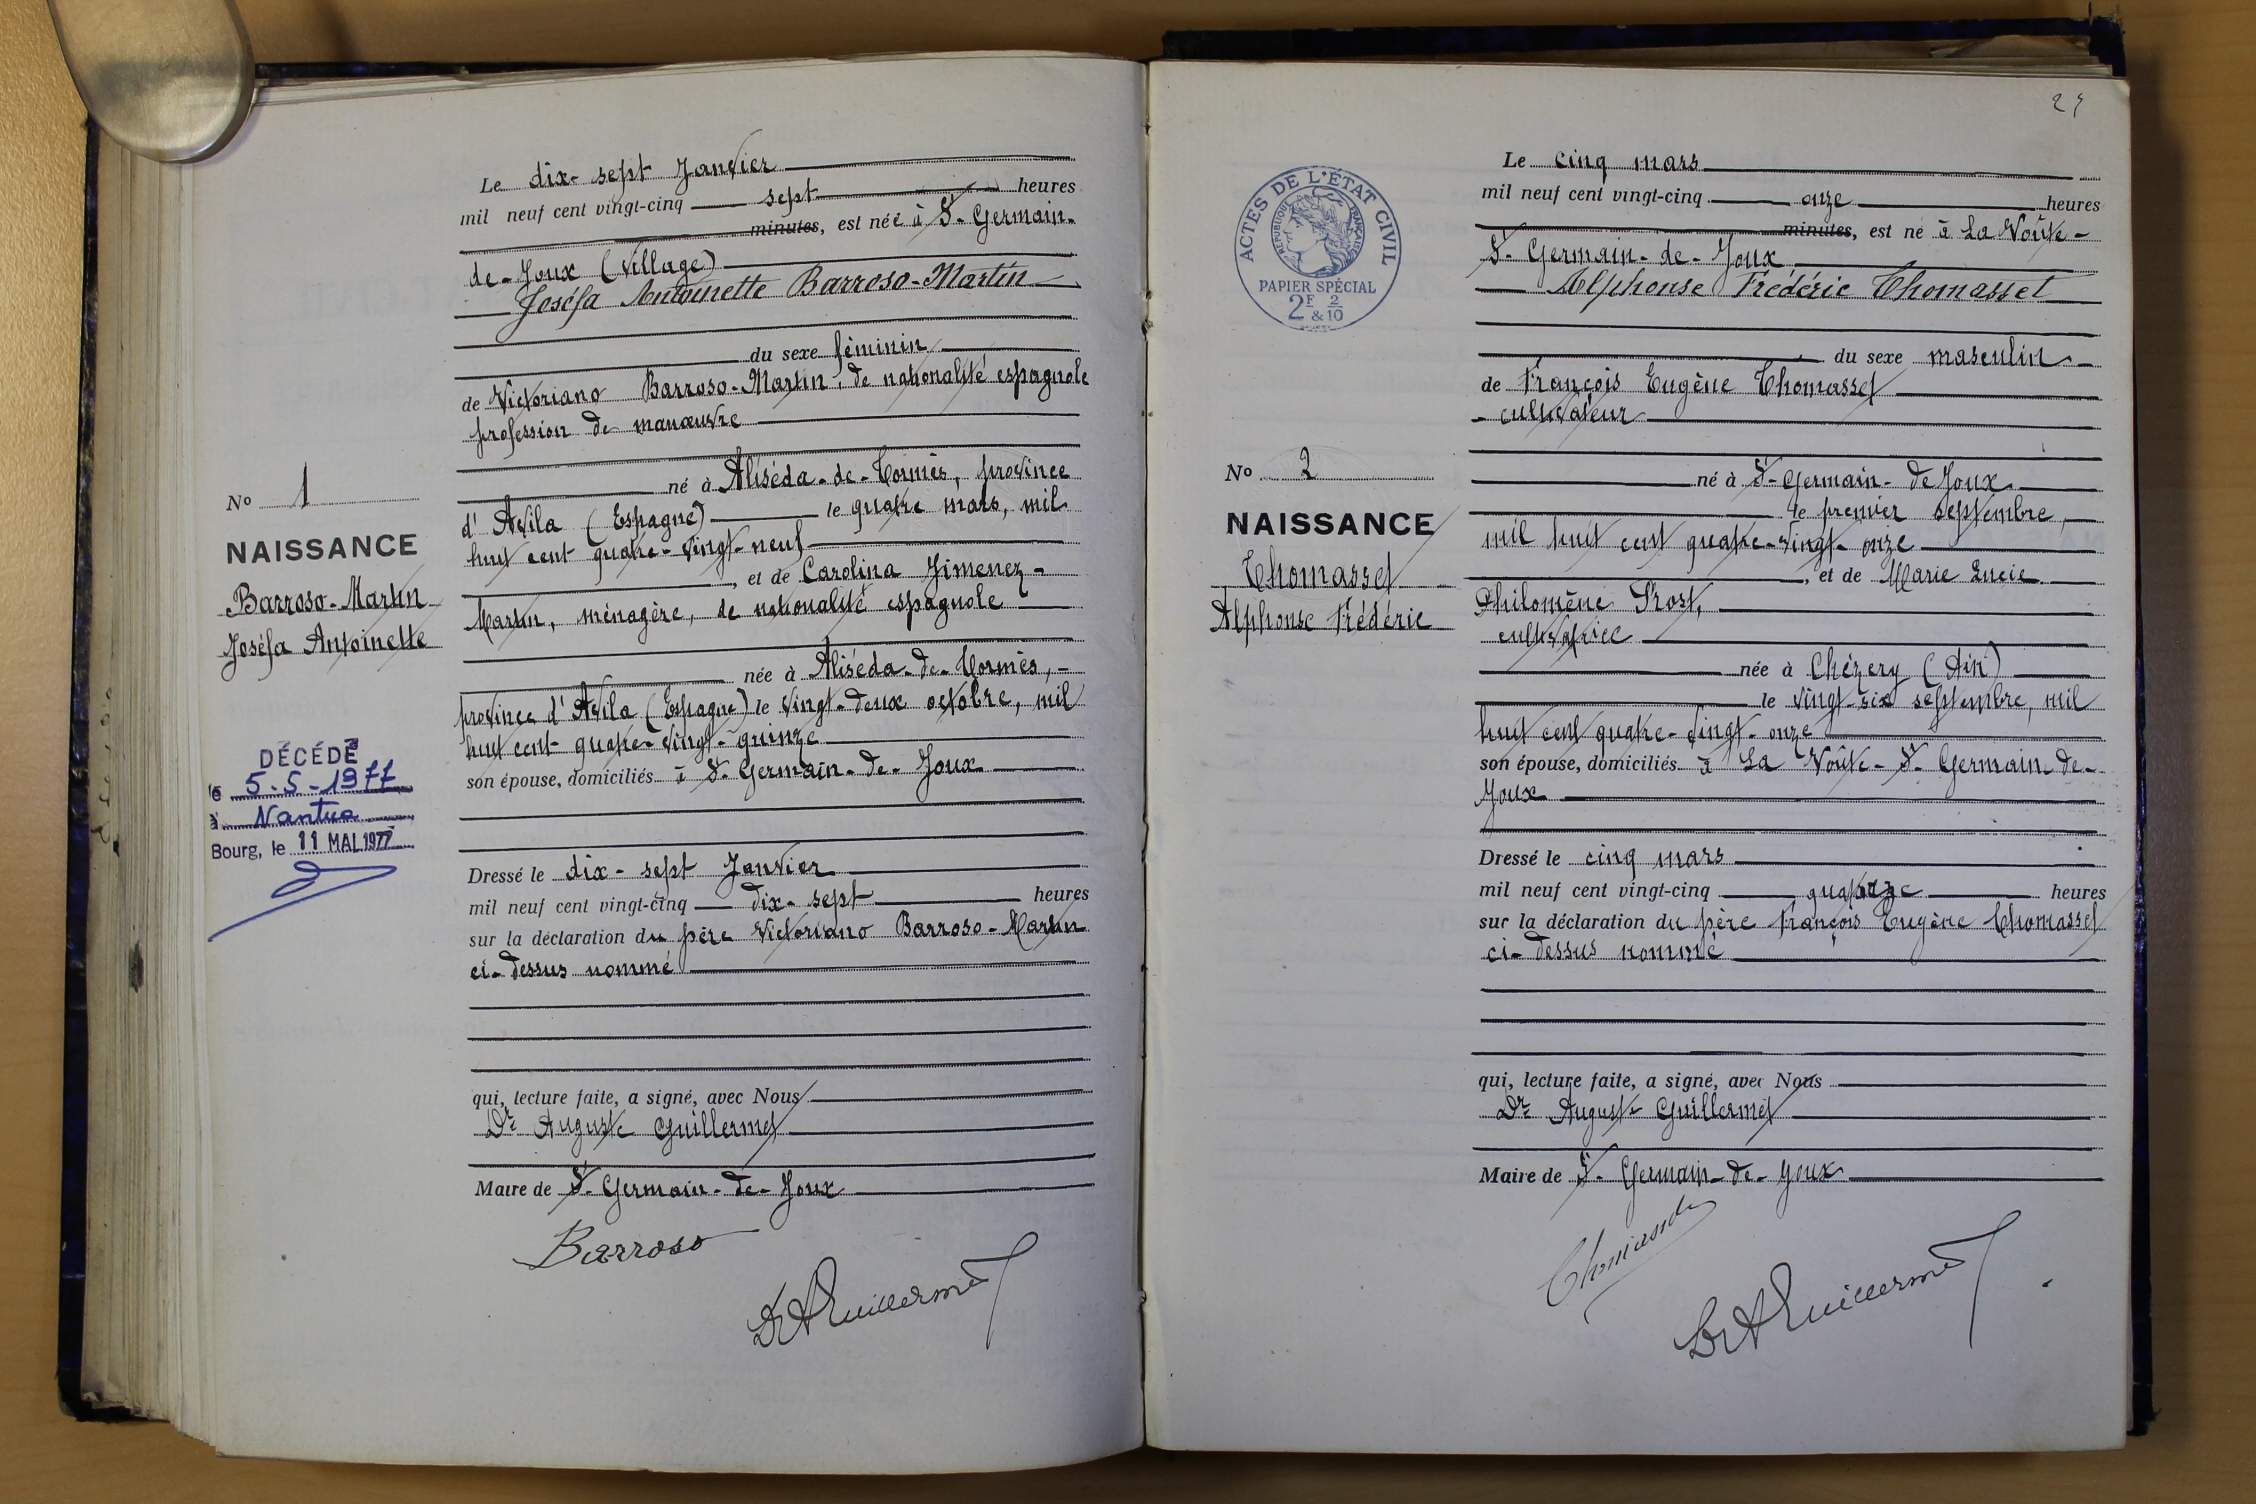 Le dix-sept Janvier
mil neuf cent vingt-cinq sept heures
minutes, est née à St-Germain-
de-Joux (Village)
Joséfa Antoinette Barroso-Martin
du sexe féminin
de Victoriano Barroso-Martin, de nationalité espagnole
profession de manœuvre
né à Aliséda-de-Tormès, province
d'Avila (Espagne) le quatre mars, mil
huit cent quatre-vingt-neuf
, et de Carolina Jimenez-
Martin, ménagère, de nationalité espagnole
née à Aliséda-de-Tormès,
province d'Avila (Espagne) le vingt-deux octobre, mil
huit cent quatre-vingt-quinze
son épouse, domiciliés à St-Germain-de-Joux
Dressé le dix-sept Janvier
mil neuf cent vingt-cinq dix-sept heures
sur la déclaration du père Victoriano Barroso-Martin
ci-dessus nommé
qui, lecture faite, a signé, avec Nous
Dr Auguste Guillermet
Maire de St-Germain-de-Joux
Barroso
Dr A Guillermet
No 1
NAISSANCE
Barroso-Martin
Joséfa Antoinette
DÉCÉDÉE
le 5-5-1977
à Nantua
Bourg, le 11 MAI 1977
Le cinq mars
mil neuf cent vingt-cinq onze heures
minutes, est né à La Voûte-
St Germain-de-Joux
Alphonse Frédéric Thomasset
du sexe masculin
de François Eugène Thomasset
cultivateur
né à St-Germain-de Joux
le premier septembre,
mil huit cent quatre-vingt-onze
, et de Marie Lucie
Philomène Prost,
cultivatrice
née à Chézery (Ain)
le vingt-six septembre, mil
huit cent quatre-vingt-onze
son épouse, domiciliés à La Voûte-St Germain-de-
Joux
Dressé le cinq mars
mil neuf cent vingt-cinq quatorze heures
sur la déclaration du père François Eugène Thomasset
ci-dessus nommé
qui, lecture faite, a signé, avec Nous
Dr Auguste Guillermet
Maire de St-Germain-de-Joux
Dr A Guillermet
ACTES DE L'ÉTAT CIVIL
RÉPUBLIQUE FRANÇAISE
PAPIER SPÉCIAL
2F & 2/10
No 2
NAISSANCE
Thomasset
Alphonse Frédéric